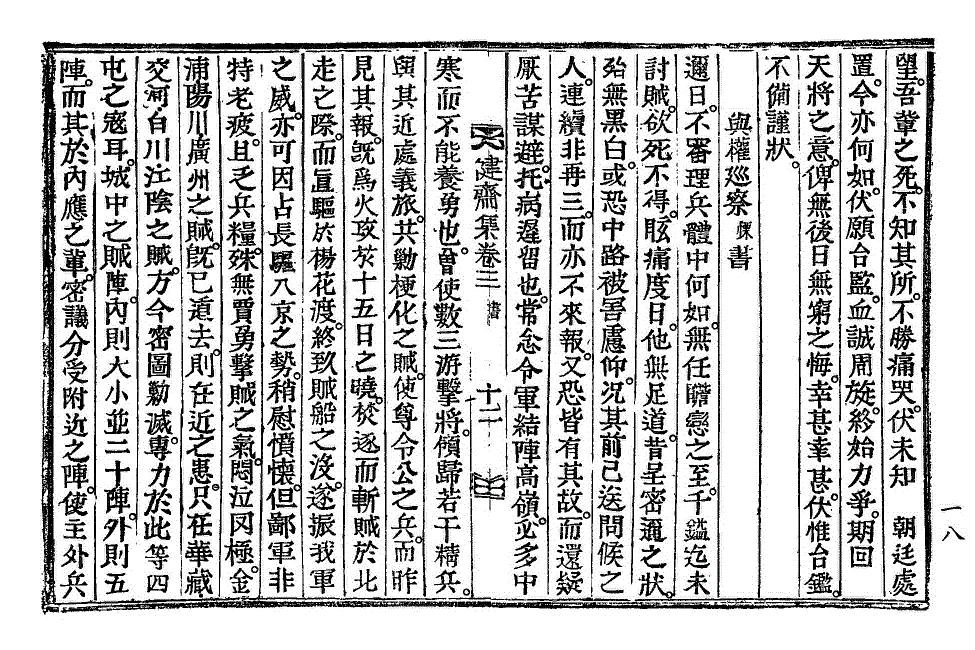 望。吾輩之死。不知其所。不勝痛哭。伏未知 朝廷處
置。今亦何如。伏願台監。血誠周旋。終始力爭。期回
天將之意。俾無後日無窮之悔。幸甚幸甚。伏惟台鑑。
不備謹狀。
與權巡察慄書
邇日。不審理兵體中何如。無任瞻戀之至。千鎰迄未
討賊。欲死不得。脹痛度日。他無足道。昔呈密邇之狀。
殆無黑白。或恐中路被害。慮仰。况其前已送問候之
人。連續非再三。而亦不來報。又恐皆有其故。而還疑
厭苦謀避。托病遲留也。常念令軍結陣高嶺。必多中
建齋集卷三 書 十二
寒而不能養勇也。曾使數三游擊將。領歸若干精兵。
與其近處義旅。共勦梗化之賊。使尊令公之兵。而昨
見其報。旣爲火攻於十五日之曉。焚逐而斬賊於北
走之際。而直驅於楊花渡。終致賊船之沒。遂振我軍
之威。亦可因占長驅入京之勢。稍慰憤懷。但鄙軍非
特老疲。且乏兵糧。殊無賈勇擊賊之氣。悶泣罔極。金
浦陽川廣州之賊。旣已遁去。則在近之患。只在華藏
交河白川江陰之賊。方今密圖勦滅。專力於此等四
屯之寇耳。城中之賊陣。內則大小並二十陣。外則五
陣。而其於內應之輩。密議分受附近之陣。使主外兵
一八